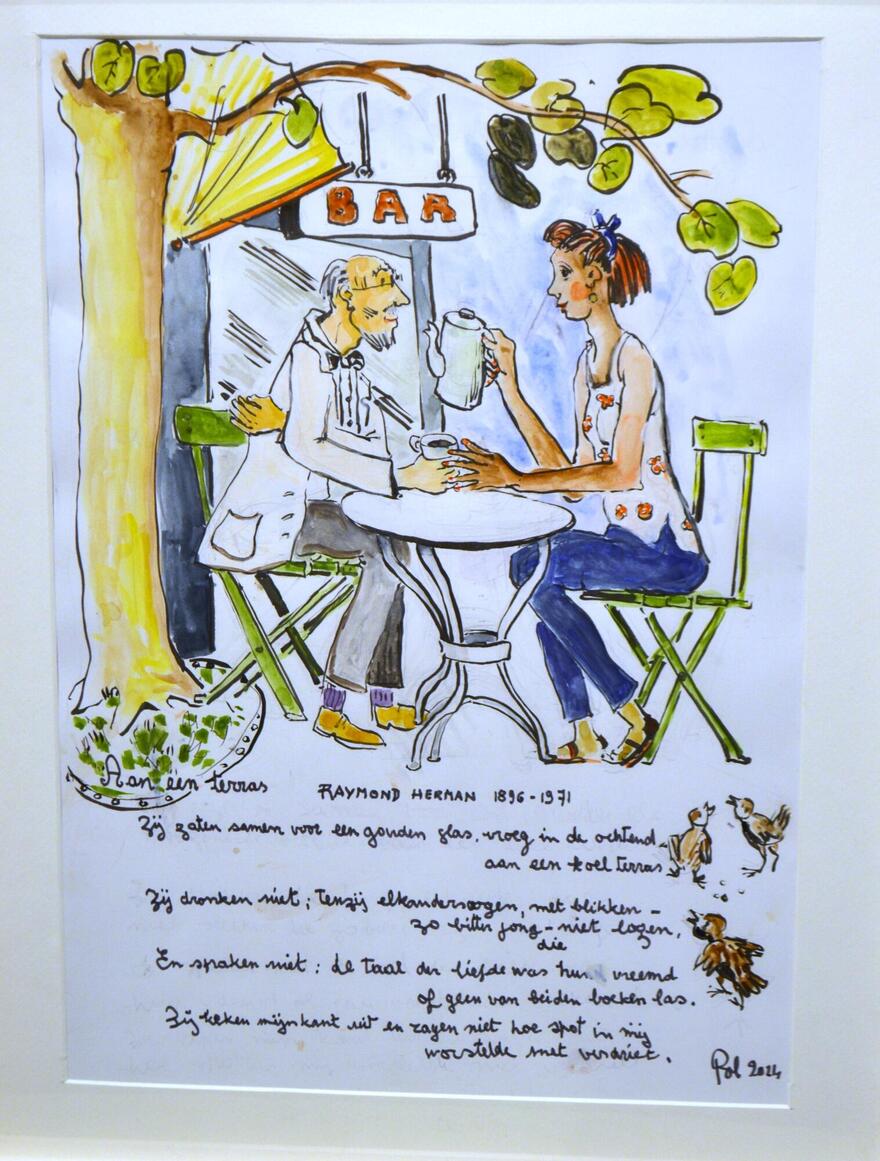 BAR
Aan een terras
RAYMOND HERMAN 1896-1971
Zij zaten samen voor een gouden glas, vroeg in de ochtend
aan een koel terras
Zij dronken niet; Tenzij elkanders ogen, met blikken -
zo bitter jong - niet logen,
die
En spraken niet: de Taal der liefde was hun vreemd
of geen van beiden boeken las.
Zij keken mijnskant uit en zagen niet hoe spot in mij
worstelde met verdriet.
Pol 2024